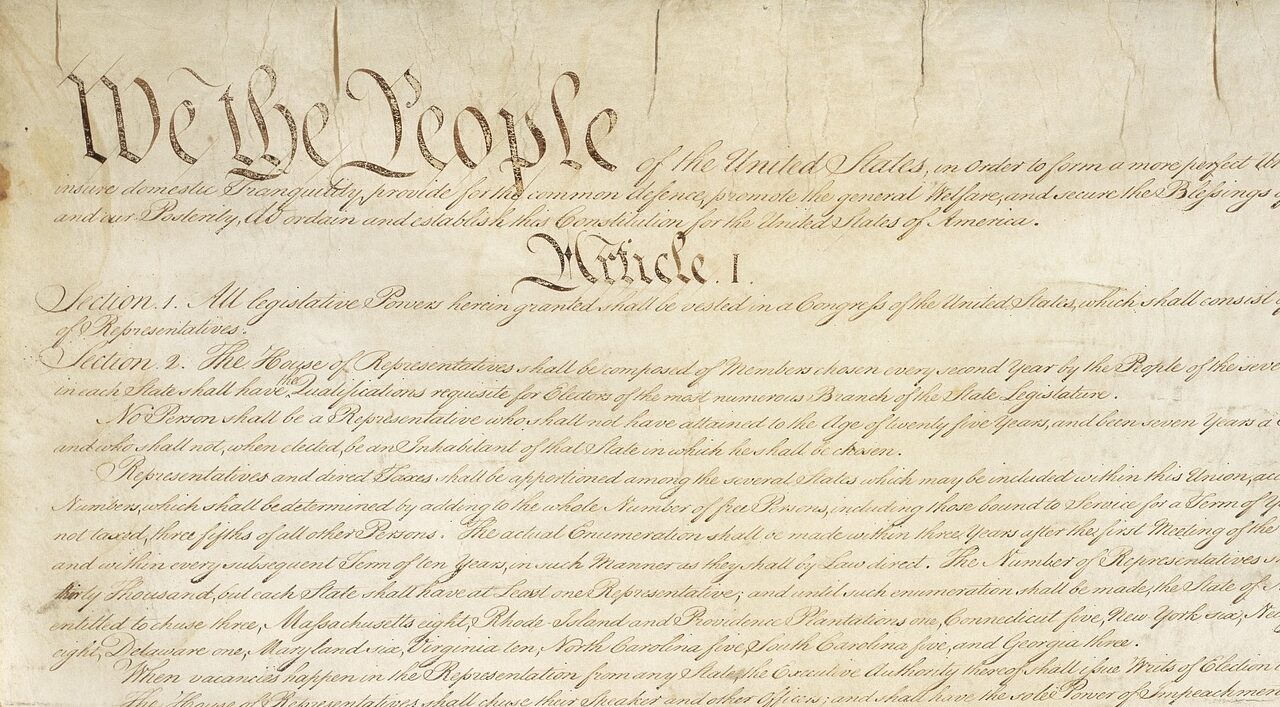 We the People of the United States, in Order to form a more perfect
insure domestic Tranquility, provide for the common defence, promote the general Welfare, and secure the Blessings
and our Posterity, do ordain and establish this Constitution for the United States of America.
Article. I.
Section. 1. All legislative Powers herein granted shall be vested in a Congress of the United States, which shall consist
of Representatives.
Section. 2. The House of Representatives shall be composed of Members chosen every second Year by the People of the
in each State shall have the Qualifications requisite for Electors of the most numerous Branch of the State Legislature.
No Person shall be a Representative who shall not have attained to the Age of twenty five Years, and been seven Years a
and who shall not, when elected, be an Inhabitant of that State in which he shall be chosen.
Representatives and direct Taxes shall be apportioned among the several States which may be included within this Union,
Numbers, which shall be determined by adding to the whole Number of free Persons, including those bound to Service for a Term of
not taxed, three fifths of all other Persons. The actual Enumeration shall be made within three Years after the first Meeting of the
and within every subsequent Term of ten Years, in such Manner as they shall by Law direct. The Number of Representatives
thirty Thousand, but each State shall have at Least one Representative; and until such enumeration shall be made, the State of
entitled to chuse three, Massachusetts eight, Rhode-Island and Providence Plantations one, Connecticut five, New-York six,
eight, Delaware one, Maryland six, Virginia ten, North Carolina five, South Carolina five, and Georgia three.
When vacancies happen in the Representation from any State, the Executive Authority thereof shall issue Writs of Election
The House of Representatives shall chuse their Speaker and other Officers; and shall have the sole Power of